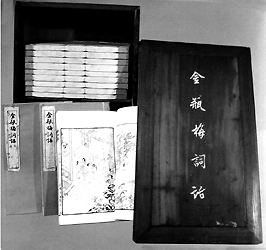 金瓶梅詞話
金瓶梅詞話
金瓶梅詞話